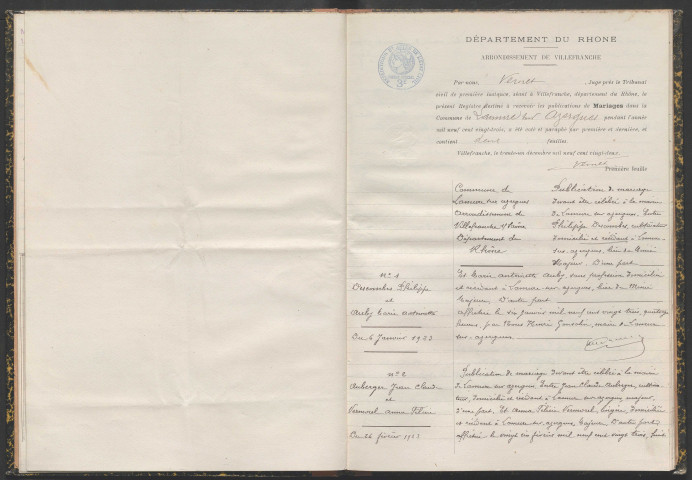 DÉPARTEMENT DU RHONE
ARRONDISSEMENT DE VILLEFRANCHE
Par nous, Vernet, Juge près le Tribunal
civil de première instance, séant à Villefranche, département du Rhône, le
présent Registre destiné à recevoir les publications de Mariages dans la
Commune de Lamure sur Azergues pendant l'année
mil neuf cent vingt-trois, a été coté et paraphé par première et dernière, et
contient deux feuilles
Villefranche, le trente-un décembre mil neuf cent vingt-deux.
Vernet
Première feuille
3F
Commune de
Lamure sur azergues
Arrondissement de
Villefranche s/ Saône
Département du
Rhône
Publication de mariage
devant être célébré à la mairie
de Lamure sur azergues, Entre
Philippe Descombes, cultivateur
domicilié et résidant à Lamure
sur azergues,
Majeur, D'une part
N° 1
Descombes Philippe
et
Marie antoinette
Du 6 Janvier 1923
Et Marie antoinette sans profession domiciliée
et résidant à Lamure-sur-azergues,
Majeure, D'autre part
affichée le six janvier mil neuf cent vingt trois,
heures, par Nous maire de Lamure
sur azergues
N° 2
Auberger Jean Claude
et
Vermorel anna
Du 26 février 1923
Publication de mariage devant être célébré à la mairie
de Lamure sur azergues Entre Jean Claude Auberger, cultiva
teur, domicilié et résidant à Lamure sur azergues majeur,
D'une part, Et Anna Vermorel, domiciliée
et résidant à Lamure sur azergues, Majeure, D'autre part
affichée le vingt six février mil neuf cent vingt trois, huit